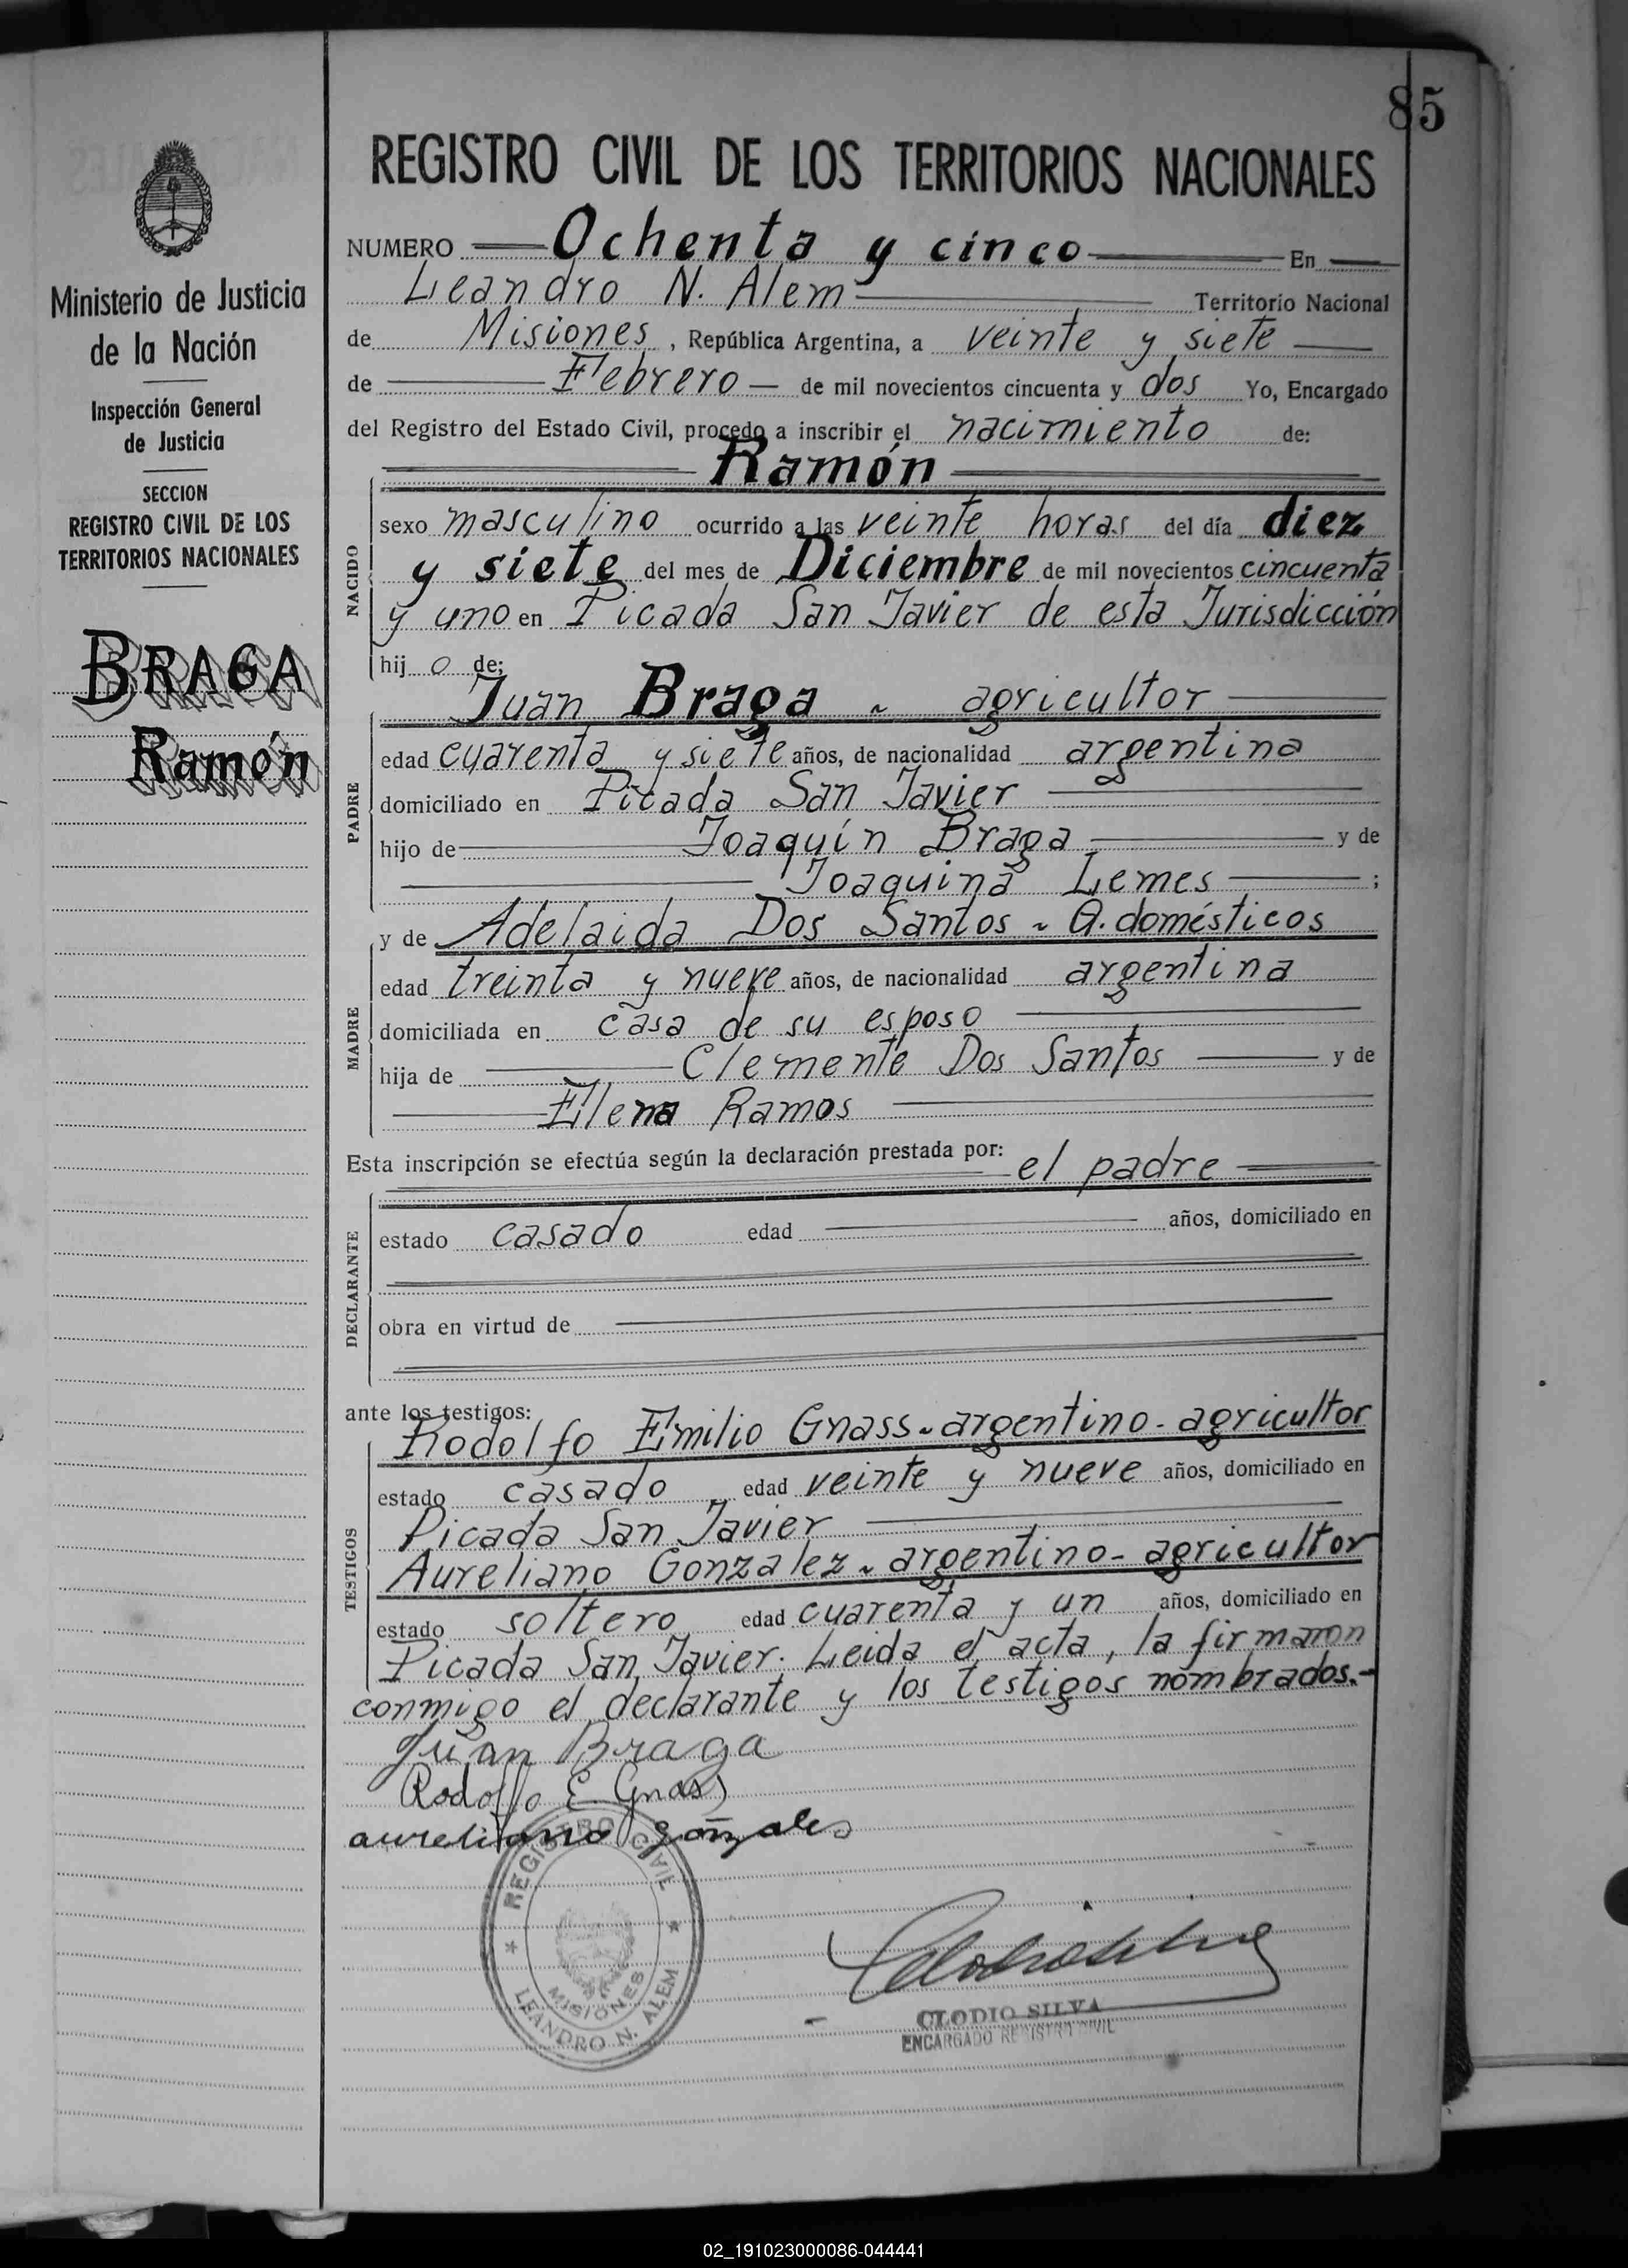 85
REGISTRO CIVIL DE LOS TERRITORIOS NACIONALES
Ministerio de Justicia
de la Nación
Inspección General
de Justicia
SECCION
REGISTRO CIVIL DE LOS
TERRITORIOS NACIONALES
BRAGA
Ramón
NUMERO Ochenta y cinco En
Leandro N. Alem Territorio Nacional
de Misiones, República Argentina, a veinte y siete
de Febrero de mil novecientos cincuenta y dos Yo, Encargado
del Registro del Estado Civil, procedo a inscribir el nacimiento de:
Ramón
NACIDO
sexo masculino ocurrido a las veinte horas del día diez
y siete del mes de Diciembre de mil novecientos cincuenta
y uno en Picada San Javier de esta Jurisdicción
hijo de:
Juan Braga - agricultor
PADRE
edad cuarenta y siete años, de nacionalidad argentina
domiciliado en Picada San Javier
hijo de Joaquín Braga y de
Joaquina Lemes ;
y de Adelaida Dos Santos - Q. domésticos
MADRE
edad treinta y nueve años, de nacionalidad argentina
domiciliada en casa de su esposo
hija de Clemente Dos Santos y de
Elena Ramos
Esta inscripción se efectúa según la declaración prestada por: el padre
DECLARANTE
estado casado edad años, domiciliado en
obra en virtud de
ante los testigos:
Rodolfo Emilio Gnass - argentino - agricultor
TESTIGOS
estado casado edad veinte y nueve años, domiciliado en
Picada San Javier
Aureliano Gonzalez - argentino - agricultor
estado soltero edad cuarenta y un años, domiciliado en
Picada San Javier. Leida el acta, la firmaron
conmigo el declarante y los testigos nombrados.-
Juan Braga
Rodolfo E. Gnass
aureliano gonzales
REGISTRO CIVIL
MISIONES
LEANDRO N. ALEM
CLODIO SILVA
ENCARGADO REGISTRO CIVIL
02_191023000086-044441